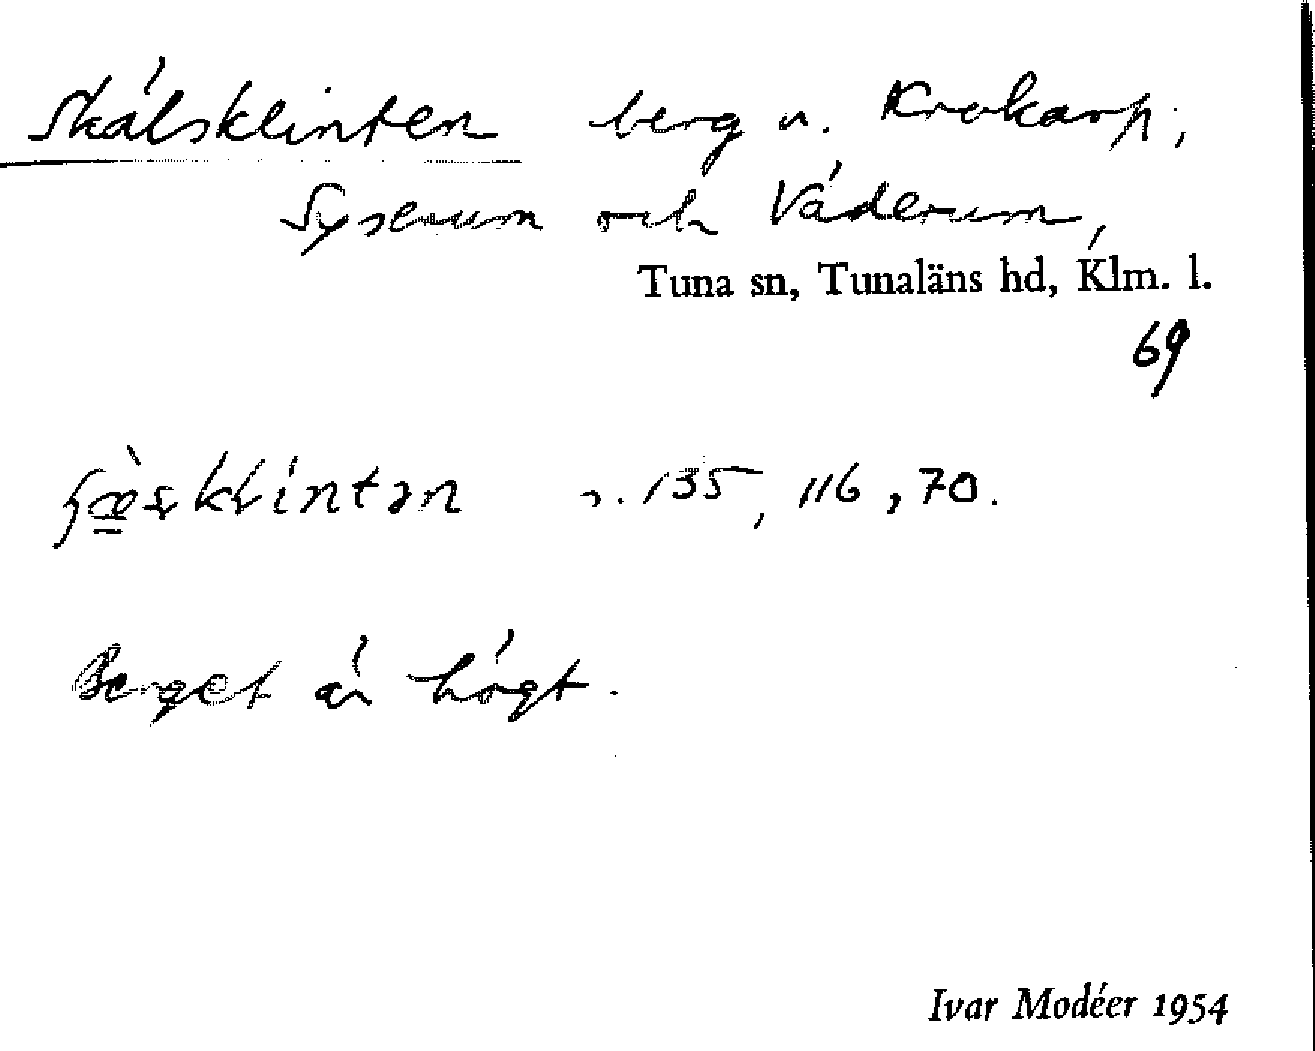 Skälsklinten berg u. Krokarp,
Syserum och Väderum,
Tuna sn, Tunaläns hd, Klm. l.
69
135, 116, 70.
Berget är högt.
Ivar Modéer 1954